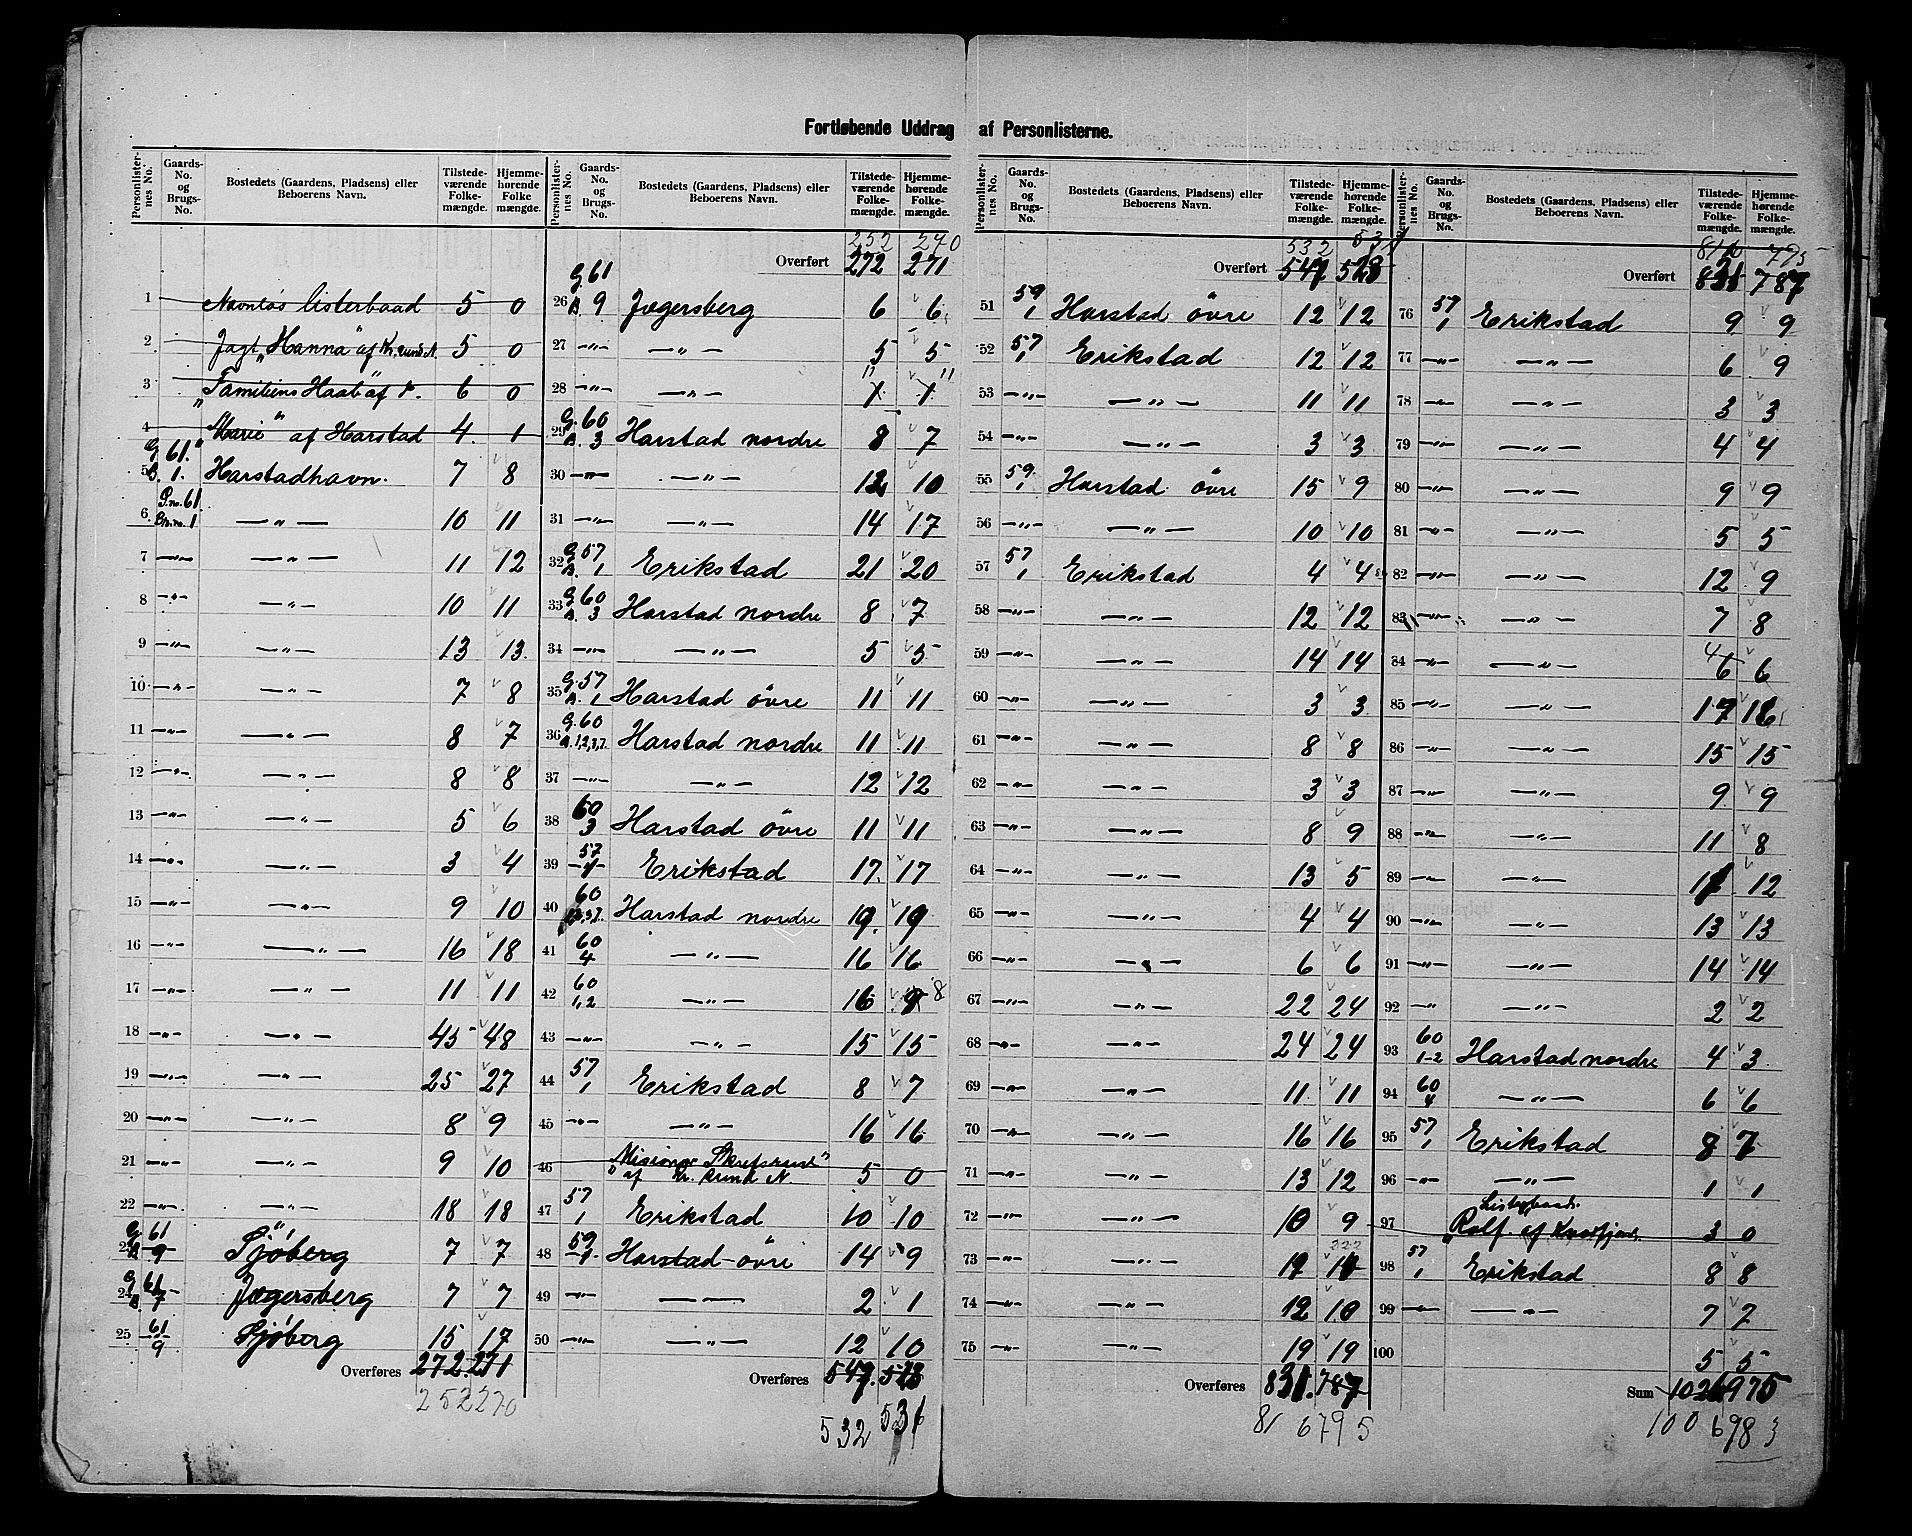 Fortløbende Uddrag af Personlisterne.
Personlister-nes No. Gaards-No. og Brugs-No. Bostedets (Gaardens, Pladsens) eller Beboerens Navn. Tilstede-værende Folke-mængde. Hjemme-hørende Folke mængde.
1 Navnløs listerbaad 5 0
2 Jagt „Hanna" af Kr.sund N. 5 0
3 „Familiens Haab" af 6 0
4 „Marie" af Harstad 4 1
5 G. 61. B. 1. Harstadhavn. 7 8
6 G.no. 61. Br.no. 1 —„— 10 11
7 —„— —„— 11 12
8 —„— —„— 10 11
9 —„— —„— 13 13
10 —„— —„— 7 8
11 —„— —„— 8 7
12 —„— —„— 8 8
13 —„— —„— 5 6
14 —„— —„— 3 4
15 —„— —„— 9 10
16 —„— —„— 16 18
17 —„— —„— 11 11
18 —„— —„— 45 48
19 —„— —„— 25 27
20 —„— —„— 8 9
21 —„— —„— 9 10
22 —„— —„— 18 18
23 G. 61 B. 9 Sjöberg 7 7
24 G. 61 B. 7 Jægersberg 7 7
25 61 9 Sjöberg 15 17
Overføres 272 271
252 270
Personlister-nes No. Gaards-No. og Brugs-No. Bostedets (Gaardens, Pladsens) eller Beboerens Navn. Tilstede-værende Folke-mængde. Hjemme-hørende Folke-mængde.
252 270
Overført 272 271
26 G. 61 B. 9 Jægersberg 6 6
27 —„— —„— 5 5
28 —„— —„— 11 11
29 G. 60 B. 3 Harstad nordre 8 7
30 —„— —„— 12 10
31 —„— —„— 14 17
32 G. 57 B. 1 Erikstad 21 20
33 G. 60 B. 3 Harstad nordre 8 7
34 —„— —„— 5 5
35 G. 57 B. 1 Harstad övre 11 11
36 G. 60 B. 1,2,3,7. Harstad nordre 11 11
37 —„— —„— 12 12
38 60 3 Harstad övre 11 11
39 57 1 Erikstad 17 17
40 60 Harstad nordre 19 19
41 60 4 —„— 16 16
42 60 1,2 —„— 16 8
43 —„— —„— 15 15
44 57 1 Erikstad 8 7
45 —„— —„— 16 16
46 „Misionær Skrefsrud" af Kr. sund N 5 0
47 57 1 Erikstad 10 10
48 59 1 Harstad övre 14 9
49 —„— —„— 2 1
50 —„— —„— 12 10
Overføres 547 528
532 531
Personlister-nes No. Gaards-No. og Brugs-No. Bostedets (Gaardens, Pladsens) eller Beboerens Navn. Tilstede-værende Folke-mængde. Hjemme-hørende Folke-mængde.
532 531
Overført 547 528
51 59 1 Harstad övre 12 12
52 57 1 Erikstad 12 12
53 —„— —„— 11 11
54 —„— —„— 3 3
55 59 1 Harstad övre 15 9
56 —„— —„— 10 10
57 57 1 Erikstad 4 4
58 —„— —„— 12 12
59 —„— —„— 14 14
60 —„— —„— 3 3
61 —„— —„— 8 8
62 —„— —„— 3 3
63 —„— —„— 8 9
64 —„— —„— 13 5
65 —„— —„— 4 4
66 —„— —„— 6 6
67 —„— —„— 22 24
68 —„— —„— 24 24
69 —„— —„— 11 11
70 —„— —„— 16 16
71 —„— —„— 13 12
72 —„— —„— 10 9
73 —„— —„— 12
74 —„— —„— 12 10
75 —„— —„— 19 19
Overføres 831 787
816 795
Personlister-nes No. Gaards-No. og Brugs-No. Bostedets (Gaardens, Pladsens) eller Beboerens Navn. Tilstede-værende Folke-mængde. Hjemme-hørende Folke-mængde.
816 795
Overført 831 787
76 57 1 Erikstad 9 9
77 —„— —„— 6 9
78 —„— —„— 3 3
79 —„— —„— 4 4
80 —„— —„— 9 9
81 —„— —„— 5 5
82 —„— —„— 12 9
83 —„— —„— 7 8
84 —„— —„— 6 6
85 —„— —„— 17 16
86 —„— —„— 15 15
87 —„— —„— 9 9
88 —„— —„— 11 8
89 —„— —„— 12
90 —„— —„— 13 13
91 —„— —„— 14 14
92 —„— —„— 2 2
93 60 1-2 Harstad nordre 4 3
94 60 4 —„— 6 6
95 57 1 Erikstad 8 7
96 —„— —„— 1 1
97 Rolf. af 3 0
98 57 1 Erikstad 8 8
99 —„— —„— 7 7
100 5 5
Sum 1026 975
1006 983